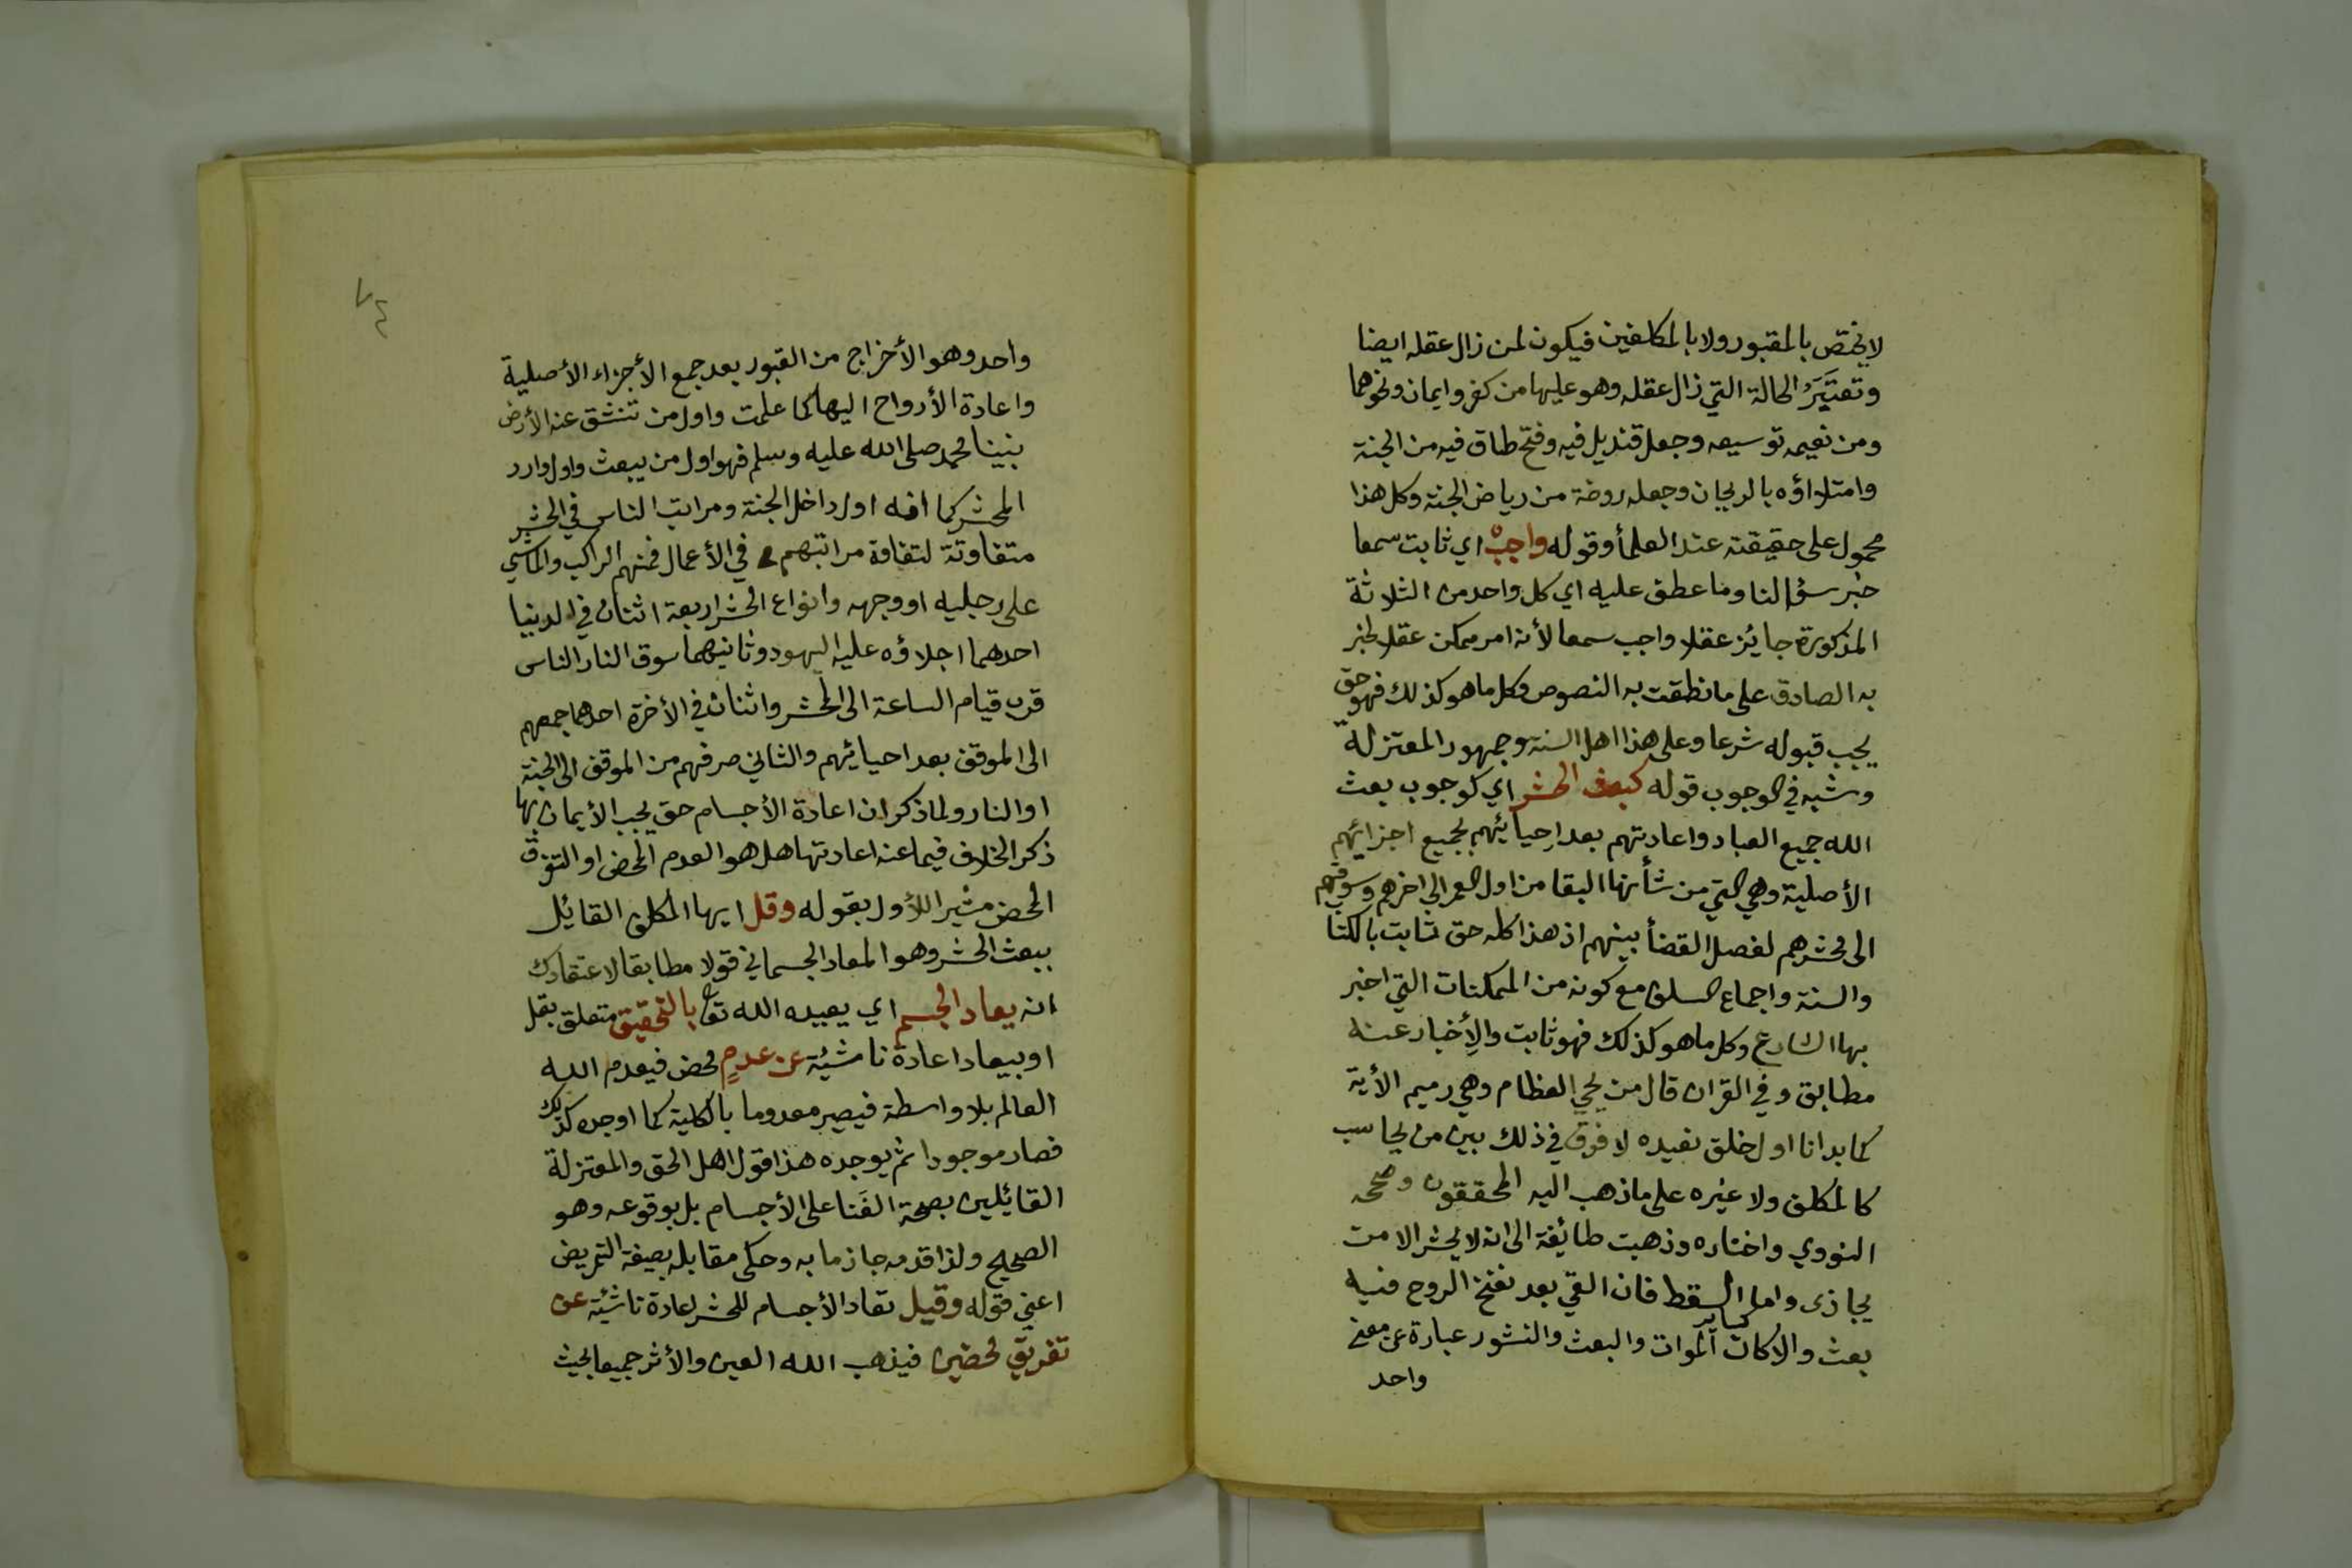 لا يختص بالمقبور ولا بالمكلفين فيكون لمن زال عقله ايضا
وتعتبر الحالة التي زال عقله وهو عليها من كفر وايمان ونحوهما
ومن نعيمه توسيعه وجعل قنديل فيه وفتح طاق فيه من الجنة
وامتلاؤه بالريحان وجعله روضة من رياض الجنة وكل هذا
محمول على حقيقته عند العلمأ وقوله واجبٌ اي ثابت سمعا
خبر سؤالنا وما عطف عليه اي كل واحد من الثلاثة
المذكورة جايز عقلا واجب سمعا لأنه امر ممكن عقلا اخبر
به الصادق على ما نطقت به النصوص وكل ما هو كذلك فهو حق
يجب قبوله شرعا وعلى هذا اهل السنة وجمهور المعتزلة
وشبه في الوجوب قوله كبعث الحشر اي كوجوب بعث
الله جميع العباد واعادتهم بعد إحيائهم بجميع اجزائهم
الأصلية وهي التي من شأنها البقا من اول العمر الى اخرهم وسوقهم
الى محشرهم لفصل القضأ بينهم اذ هذا كله حق ثابت بالكتا
والسنة واجماع السلف مع كونه من الممكنات التي اخبر
بها الشارع وكل ما هو كذلك فهو ثابت والإخبار عنه
مطابق وفي القران قال من يحي العظام وهي رميم الأية
كما بدانا اول خلق نعيده لا فرق في ذلك بين من يحاسب
كالمكلف ولا غيره على ما ذهب اليه المحققون وصححه
النووي واختاره وذهبت طائفة الى انه لا يحشر الا من
يجازى واما السقط فان القي بعد نفخ الروح فيه
بعث والا كان كساير الموات والبعث والنشور عبارة عن معنى
واحد
٧٤
واحد وهو الأخراج من القبور بعد جمع الأجزاء الأصلية
واعادة الأرواح اليها كما علمت واول من تنشق عنه الأرض
نبينا محمد صلى الله عليه وسلم فهو اول من يبعث واول وارد
المحشر كما انه اول داخل الجنة ومراتب الناس في الحشر
متفاوتة لتفاوة مراتبهم في الأعمال فمنهم الراكب والماشي
على رجليه او وجهه وانواع الحشر اربعة اثنان في الدنيا
احدهما اجلاؤه عليه اليهود وثانيهما سوق النار الناس
قرب قيام الساعة الى المحشر واثنان في الأخرة احدهما جمعهم
الى الموقف بعد احيائهم والثاني صرفهم من الموقف الى الجنة
او النار ولما ذكر ان اعادة الأجسام حق يجب الأيمان بها
ذكر الخلاف فيما عنه اعادتها هل هو العدم المحض او التفرق
المحض مشيرا للأول بقوله وقل ايها المكلف القائل
ببعث الحشر وهو المعاد الجسماني قولا مطابقا لاعتقادك
انه يعاد الجسم اي يعيده الله تعا بالتحقيق متعلق بقل
او بيعاد اعادة ناشئة عن عدمٍ محض فيعدم الله
العالم بلا واسطة فيصير معدوما بالكلية كما اوجده كذلك
فصار موجودا ثم يوجده هذا قول اهل الحق والمعتزلة
القائلين بصحة الفَنا على الأجسام بل بوقوعه وهو
الصحيح ولذا قدمه جازما به وحكى مقابله بصيغة التمريض
اعني قوله وقيل تعاد الأجسام للحشر اعادة ناشئة عن
تفريق محضين فيذهب الله العين والأثر جميعا بحيث